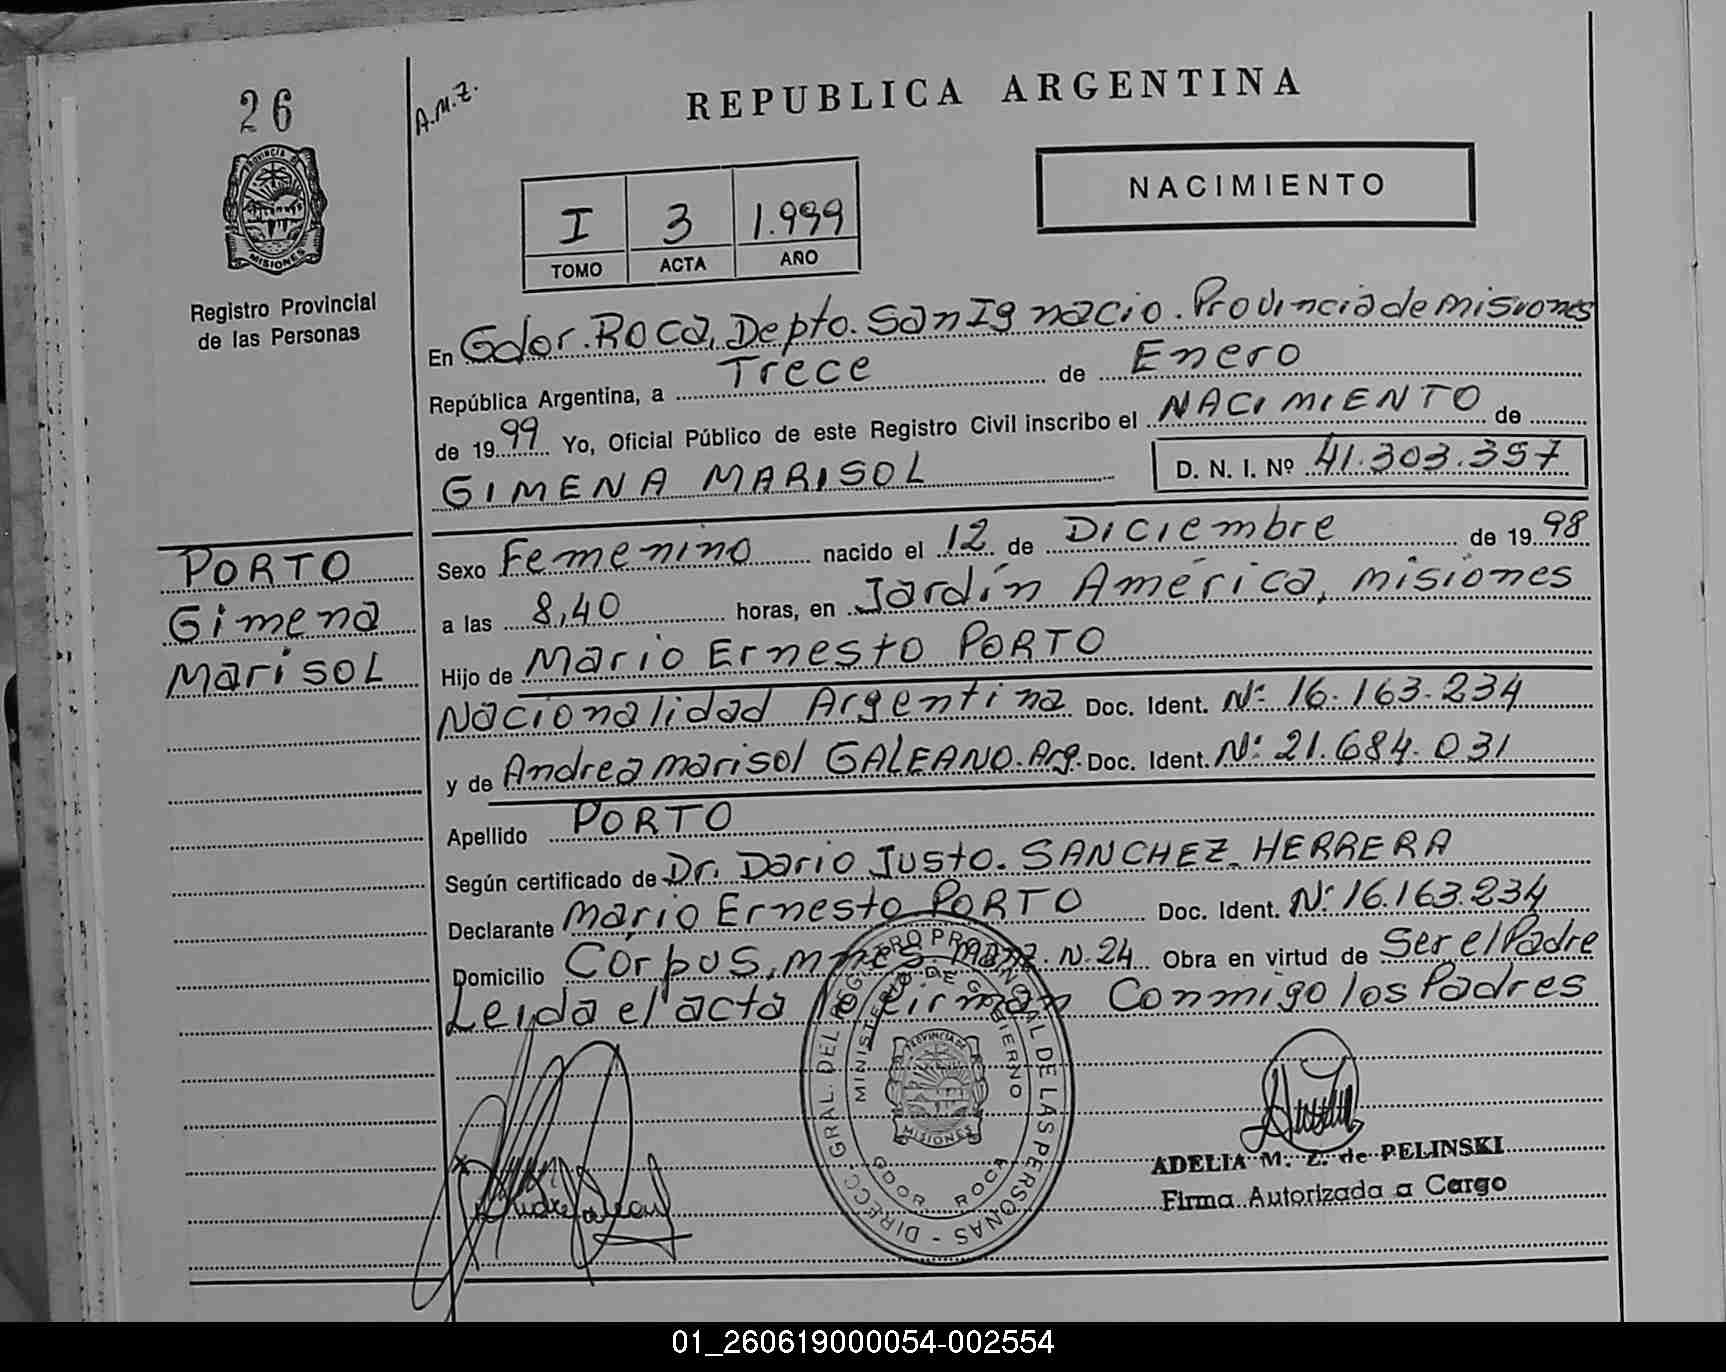 26
A.M.Z.
REPUBLICA ARGENTINA
PROVINCIA DE
MISIONES
Registro Provincial
de las Personas
I 3 1.999
TOMO ACTA AÑO
NACIMIENTO
En Gdor. Roca, Depto. San Ignacio. Provincia de misiones
República Argentina, a Trece de Enero
de 1999 Yo, Oficial Público de este Registro Civil inscribo el NACIMIENTO de
GIMENA MARISOL D. N. I. Nº 41.303.357
PORTO
Gimena
MarisoL
Sexo Femenino nacido el 12 de Diciembre de 1998
a las 8,40 horas, en Jardín América, misiones
Hijo de Mario Ernesto PORTO
Nacionalidad Argentina Doc. Ident. Nº 16.163.234
y de Andrea marisol GALEANO. Arg. Doc. Ident. Nº 21.684.031
Apellido PORTO
Según certificado de Dr. Dario Justo. SANCHEZ HERRERA
Declarante Mario Ernesto PORTO Doc. Ident. Nº 16.163.234
Domicilio Corpus, mnes N. 24 Obra en virtud de Ser el Padre
Leida el acta la firman Conmigo los Padres
DIRECC. GRAL. DEL REGISTRO PROVINCIAL DE LAS PERSONAS -
MINISTERIO DE GOBIERNO
PROVINCIA DE
MISIONES
GDOR ROCA
ADELIA M. Z. de PELINSKI
Firma Autorizada a Cargo
01_260619000054-002554